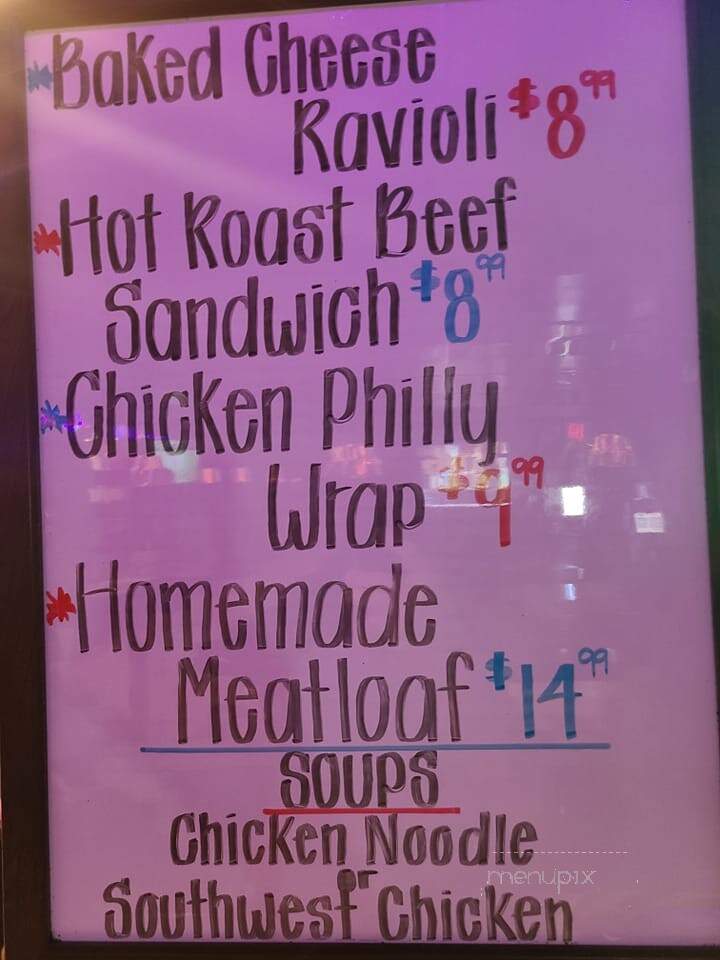 *Baked Cheese
Ravioli $8.99
*Hot Roast Beef
Sandwich $8.99
*Chicken Philly
Wrap $9.99
*Homemade
Meatloaf $14.99
SOUPS
Chicken Noodle
or
Southwest Chicken
menupix